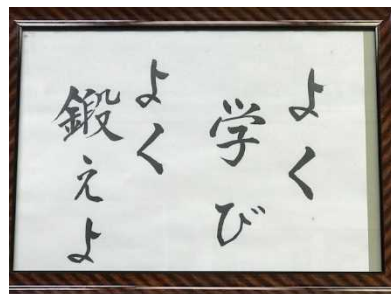 よく
学び
よく
鍛えよ